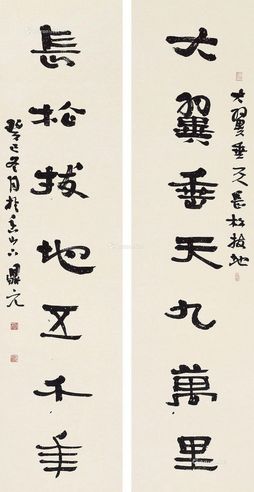 大翼垂天九萬里
大翼垂天長松拔地
長松拔地五千年
癸巳冬月於香山下鼎元